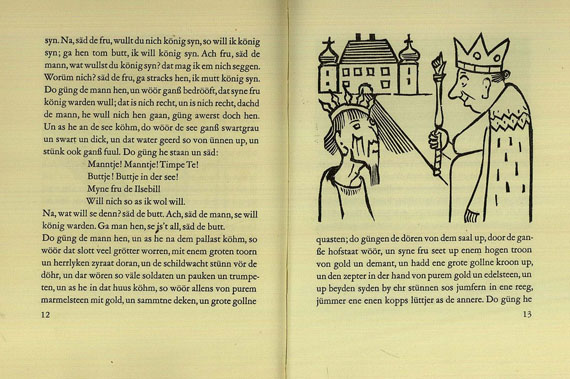 syn. Na, säd de fru, wullt du nich könig syn, so will ik könig
syn; ga hen tom butt, ik will könig syn. Ach fru, säd de
mann, wat wullst du könig syn? dat mag ik em nich seggen.
Worüm nich? säd de fru, ga stracks hen, ik mutt könig syn.
Do güng de mann hen, un wöör ganß bedrööft, dat syne fru
könig warden wull; dat is nich recht, un is nich recht, dachd
de mann, he wull nich hen gaan, güng awerst doch hen.
Un as he an de see köhm, do wöör de see ganß swartgrau
un swart un dick, un dat water geerd so von ünnen up, un
stünk ook ganß fuul. Do güng he staan un säd:
Manntje! Manntje! Timpe Te!
Buttje! Buttje in der see!
Myne fru de Ilsebill
Will nich so as ik wol will.
Na, wat will se denn? säd de butt. Ach, säd de mann, se will
könig warden. Ga man hen, se is't all, säd de butt.
Do güng de mann hen, un as he na dem pallast köhm, so
wöör dat slott veel grötter worren, mit enem groten toorn
un herrlyken zyraat doran, un de schildwacht stünn vör de
döhr, un dar wören so väle soldaten un pauken un trumpe-
ten, un as he in dat huus köhm, so wöör allens von purem
marmelsteen mit gold, un sammtne deken, un grote gollne
12
quasten; do güngen de dören von dem saal up, door de gan-
ße hofstaat wöör, un syne fru seet up enem hogen troon
von gold un demant, un hadd ene grote gollne kroon up,
un den zepter in der hand von purem gold un edelsteen, un
up beyden syden by ehr stünnen sos jumfern in ene reeg,
jümmer ene enen kopps lüttjer as de annere. Do güng he
13